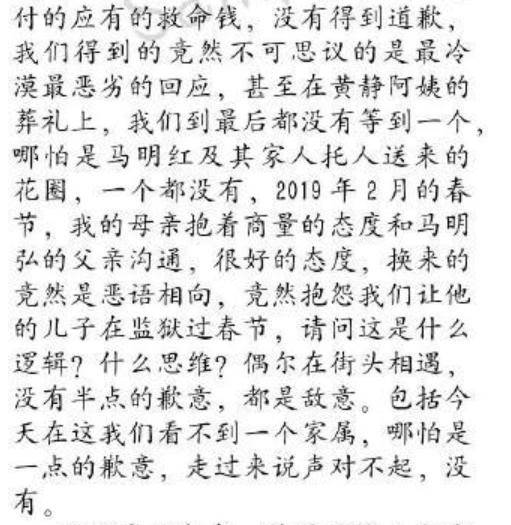 付的应有的救命钱，没有得到道歉，
我们得到的竟然不可思议的是最冷
漠最恶劣的回应，甚至在黄静阿姨的
葬礼上，我们到最后都没有等到一个，
哪怕是马明红及其家人托人送来的
花圈，一个都没有，2019年2月的春
节，我的母亲抱着商量的态度和马明
弘的父亲沟通，很好的态度，换来的
竟然是恶语相向，竟然抱怨我们让他
的儿子在监狱过春节，请问这是什么
逻辑？什么思维？偶尔在街头相遇，
没有半点的歉意，都是敌意。包括今
天在这我们看不到一个家属，哪怕是
一点的歉意，走过来说声对不起，没
有。